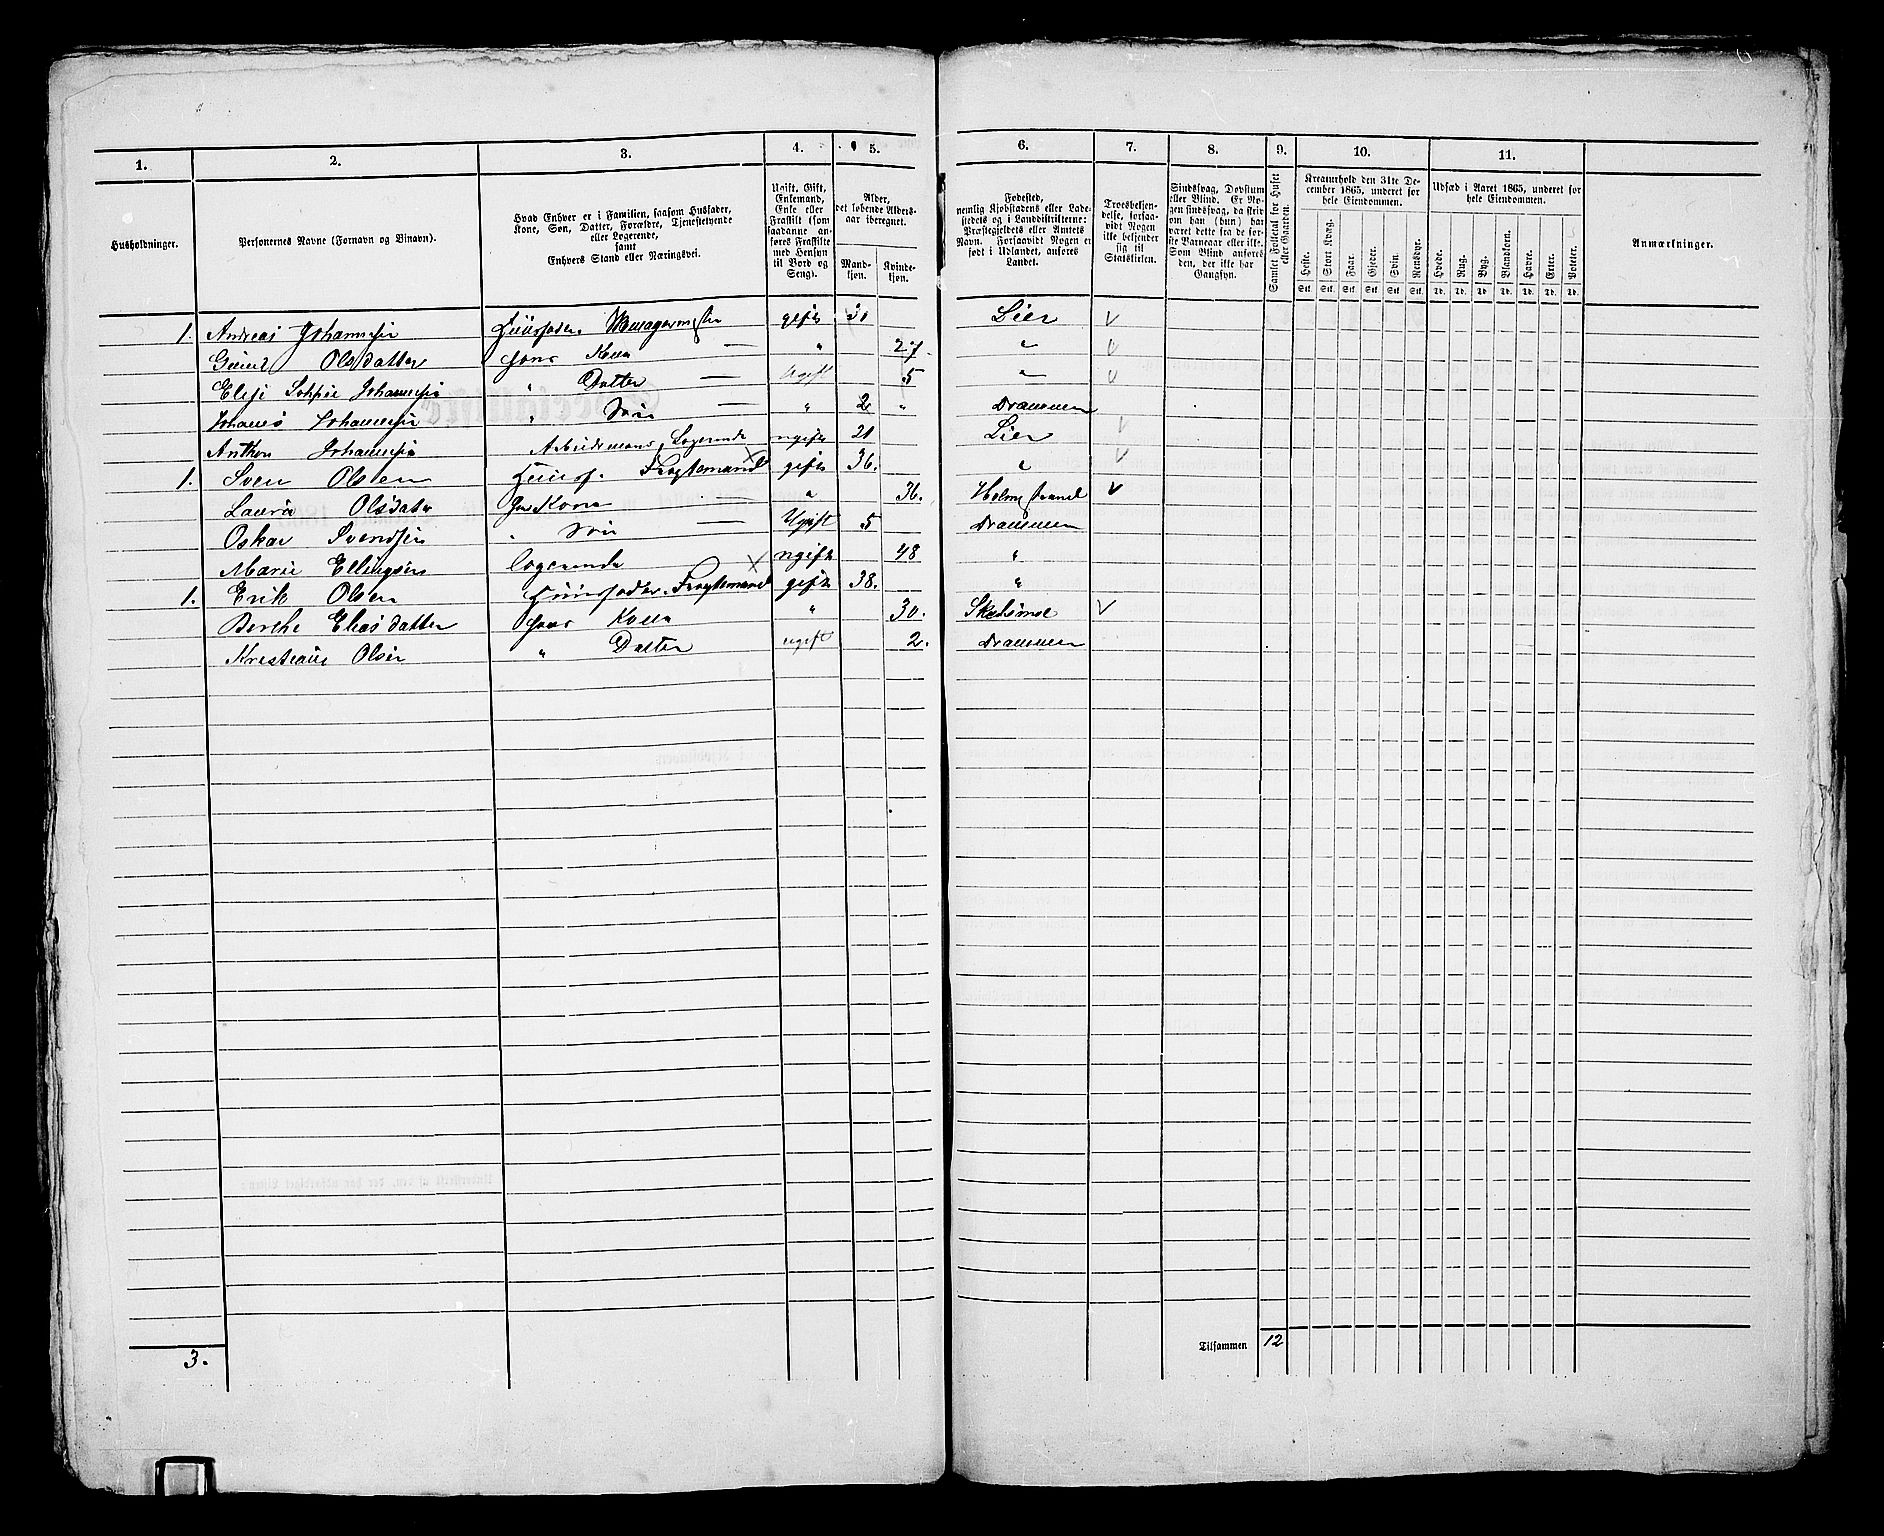 1. 2. 3. 4. 5. 6. 7. 8. 9. 10. 11.
Husholdninger.
Personernes Navne (Fornavn og Binavn).
Hvad Enhver er i Familien, saasom Husfader, Kone, Søn, Datter, Forældre, Tjenestetyende eller Logerende, samt Enhvers Stand eller Næringsvei.
Ugift, Gift, Enkemand, Enke eller Fraskilt (som saadanne anføres Fraskilte med Hensyn til Bord og Seng).
Alder, det løbende Alders-aar iberegnet.
Mandkjøn. Kvindekjøn.
Fødested, nemlig Kjøbstadens eller Ladestedets og i Landdistrikterne: Præstegjeldets eller Amtets Navn. Forsaavidt Nogen er født i Udlandet, anføres Landet.
Troesbekjendelse, forsaavidt Nogen ikke bekjender sig til Statskirken.
Sindssvag, Døvstum eller Blind. Er Nogen sindssvag, da skrives om han (hun) har været dette fra de første Barneaar eller ikke. Som Blind anføres den, der ikke har Gangsyn.
Samlet Folketal for Huset eller Gaarden.
Kreaturhold den 31te December 1865, underet for hele Eiendommen.
Heste. Stort Kvæg. Faar. Gjeder. Svin. Rensdyr.
Udsæd i Aaret 1865, underet for hele Eiendommen.
Hvede. Rug. Byg. Blandkorn. Havre. Erter. Poteter.
Stk. Stk. Stk. Stk. Stk. Stk. Td. Td. Td. Td. Td. Td. Td.
Anmærkninger.
1. Andreas Johannesen Huusfader gift 31 Lier
Olsdatter Hans Kone — " 27. "
Elise Sophie Johannesen " Datter — Ugift 5 "
Johannes Johannesen " Søn — " 2 " Drammen
Anthon Johannesen Arbeidsmand, Logerende ugift 21 Lier
1. Sven Olsen Huusf. Fragtemand gift 36. "
Laura Olsdatr Hs Kone — " 36. Holmestrand
Oskar Svendsen " Søn — Ugift 5 Drammen
Marie Ellingsen Logerende ugift 48 "
1. Erik Olsen Huusfader. Fragtemand gift 38. "
Berthe Eliasdatter Hans Kone " 30. Skedsmoe
Kristiane Olsen " Datter ugift 2. Drammen
Tilsammen 12
3.